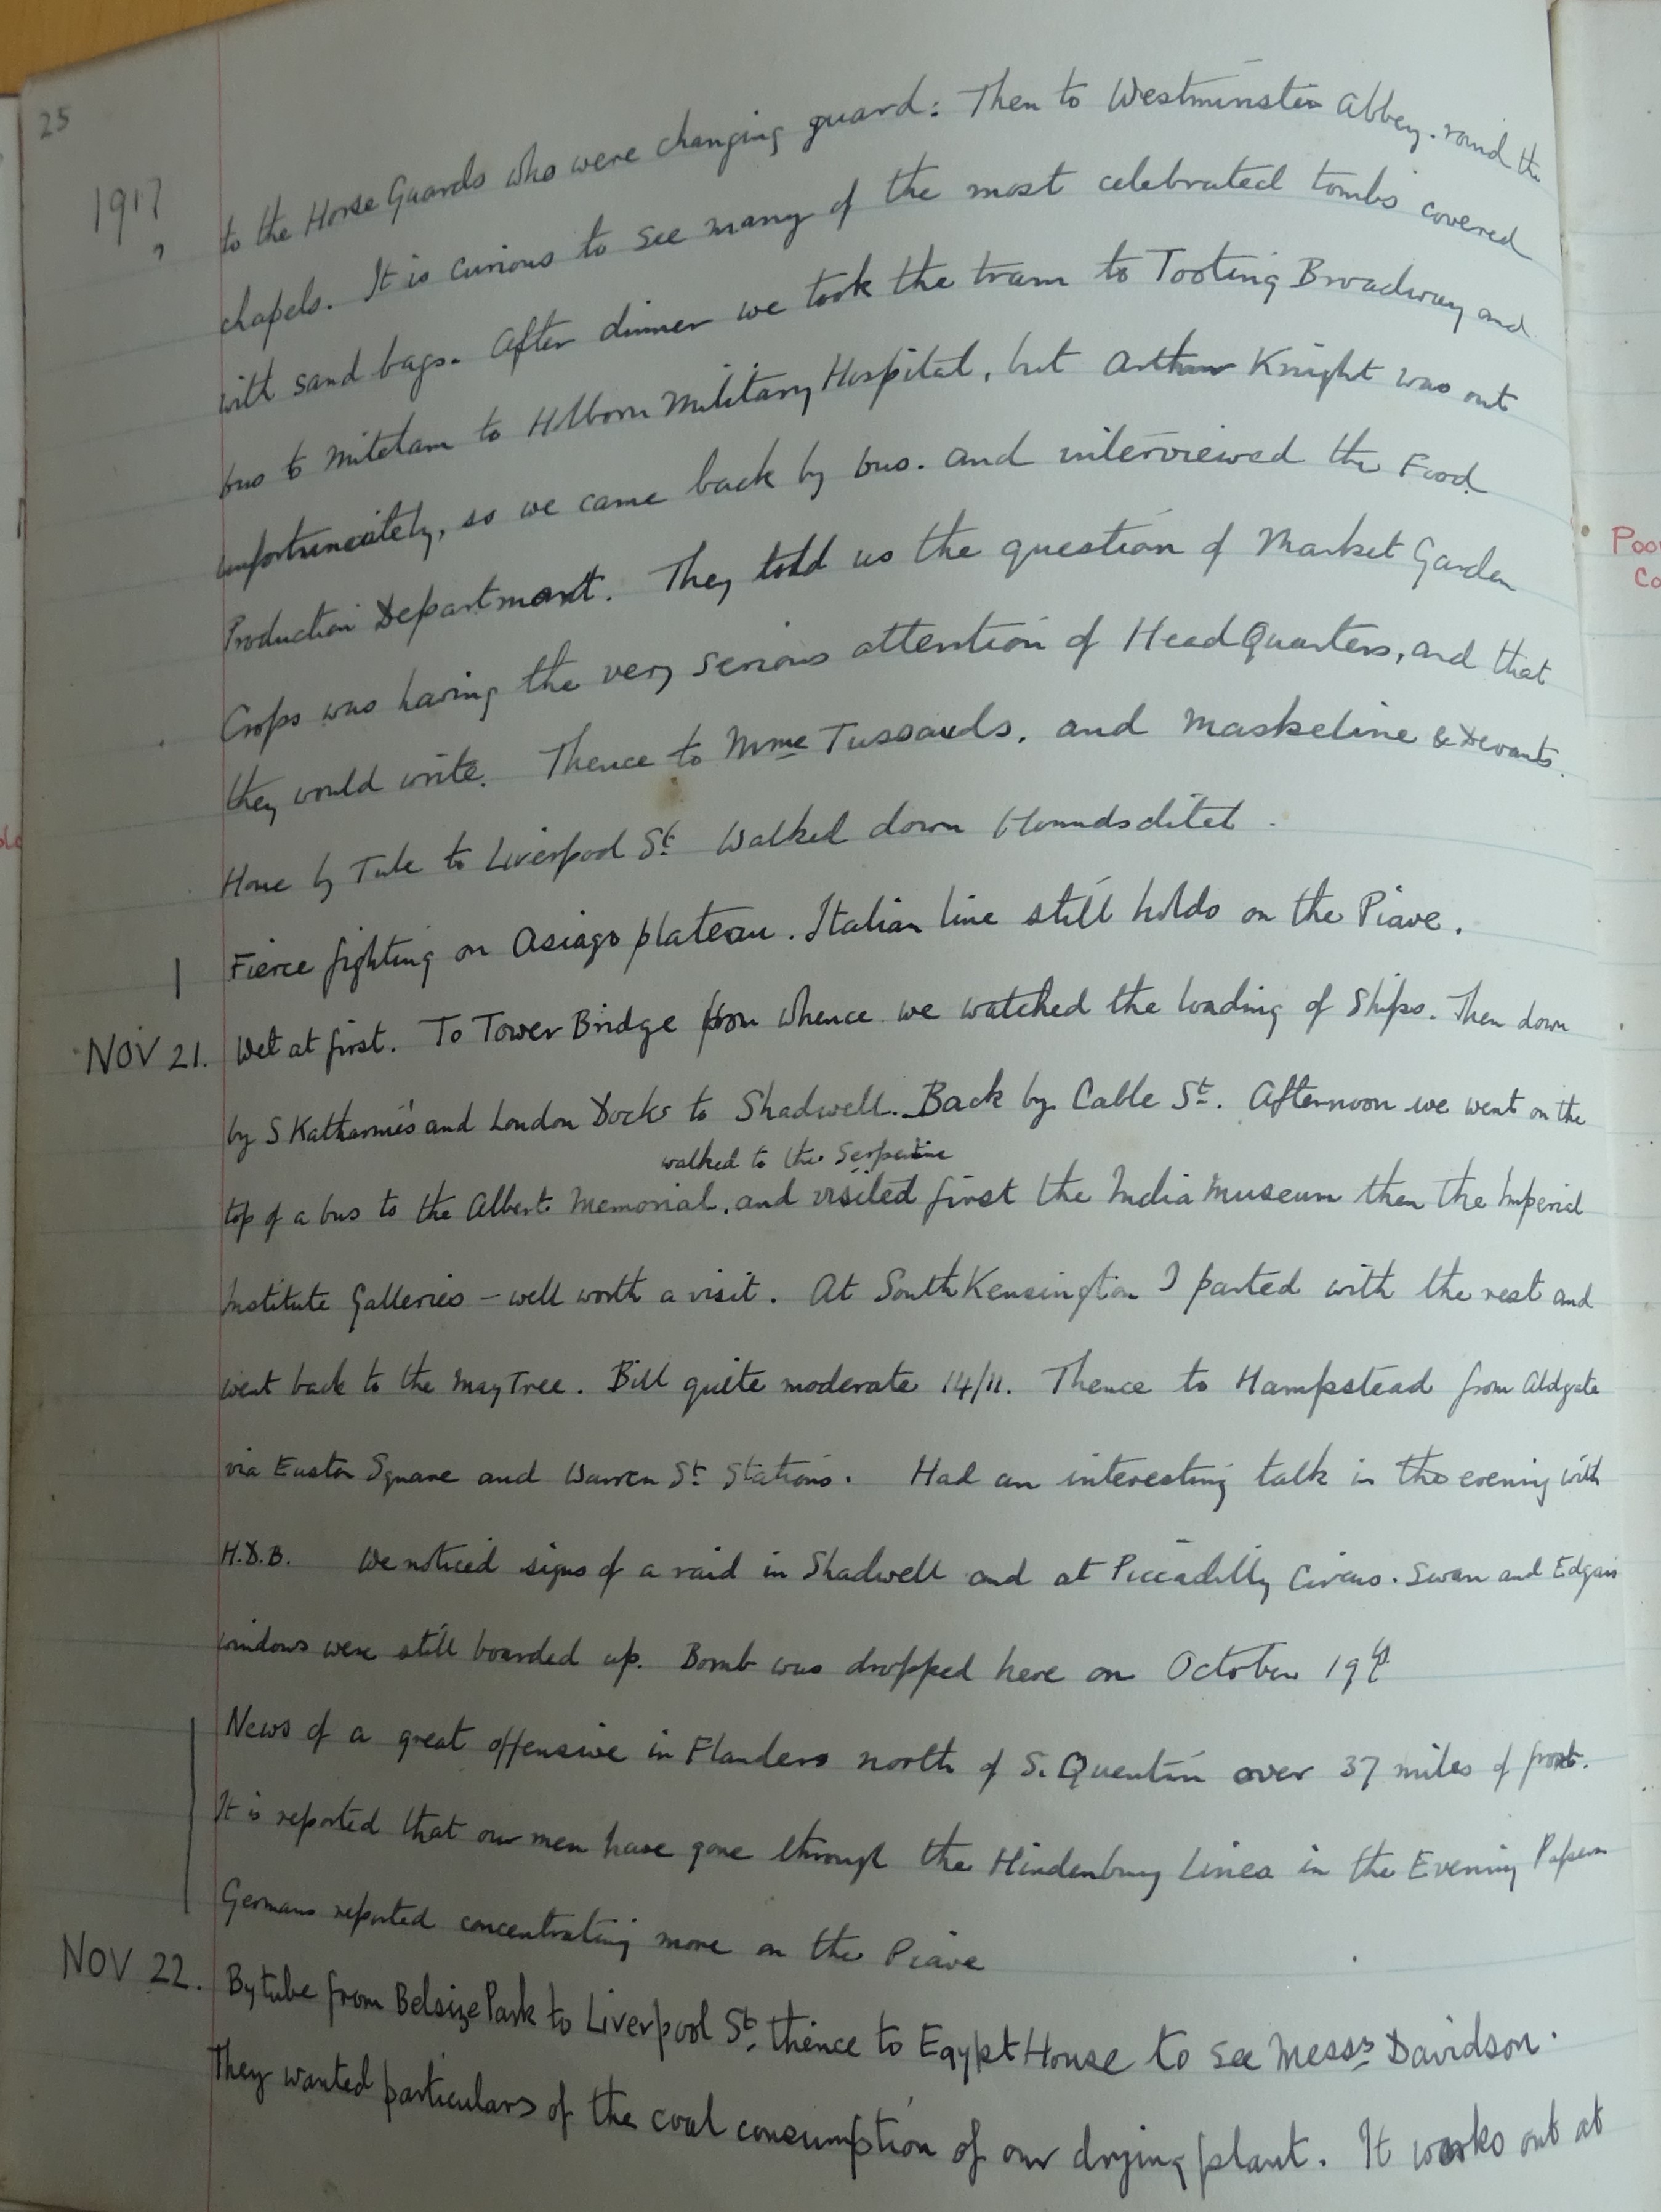 25
1917
to the Horse Guards who were changing guard: Then to Westminster Abbey. round the
chapels. It is curious to see many of the most celebrated tombs covered
with sand bags. After dinner we took the tram to Tooting Broadway and
bus to Mitcham to Holborn Military Hospital, but Arthur Knight was out
unfortunately, so we came back by bus. and interviewed the Food
Production Department. They told us the question of Market Garden
Crops was having the very serious attention of Head Quarters, and that
they would write. Thence to Mme Tussauds, and Maskeline & Devants.
Home by Tube to Liverpool St. Walked down Houndsditch.
Fierce fighting on Asiago plateau. Italian line still holds on the Piave.
NOV 21. Wet at first. To Tower Bridge from whence we watched the loading of Ships. Then down
by S Katharine's and London Docks to Shadwell. Back by Cable St. Afternoon we went on the
walked to the Serpentine
top of a bus to the Albert Memorial, and visited first the India Museum then the Imperial
Institute Galleries – well worth a visit. At South Kensington I parted with the rest and
went back to the May Tree. Bill quite moderate 14/11. Thence to Hampstead from Aldgate
via Euston Square and Warren St Stations. Had an interesting talk in the evening with
H.D.B. We noticed signs of a raid in Shadwell and at Piccadilly Circus. Swan and Edgars
windows were still boarded up. Bomb was dropped here on October 19th
News of a great offensive in Flanders north of S. Quentin over 37 miles of front.
It is reported that our men have gone through the Hindenburg Lines in the Evening Papers
Germans reported concentrating more on the Piave
NOV 22. By tube from Belsize Park to Liverpool St, thence to Egypt House to see Messrs Davidson.
They wanted particulars of the coal consumption of our drying plant. It works out at